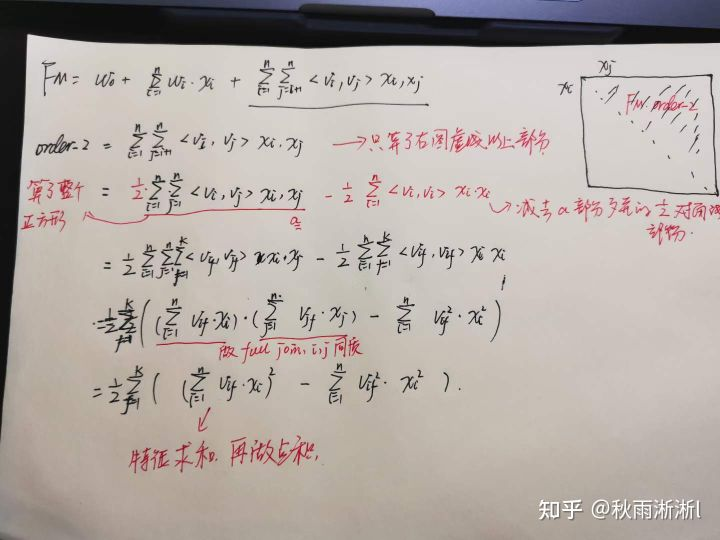 FM = w₀ + Σᵢ₌₁ⁿ wᵢ·xᵢ + Σᵢ₌₁ⁿ Σⱼ₌ᵢ₊₁ⁿ <vᵢ, vⱼ> xᵢ, xⱼ
xⱼ
xᵢ
FM. order-2
order-2 = Σᵢ₌₁ⁿ Σⱼ₌ᵢ₊₁ⁿ <vᵢ, vⱼ> xᵢ, xⱼ → 只算了右图虚线以上部份
算了整个正方形
= 1/2·Σᵢ₌₁ⁿ Σⱼ₌₁ⁿ <vᵢ, vⱼ> xᵢ, xⱼ − 1/2 Σᵢ₌₁ⁿ <vᵢ, vᵢ> xᵢ xᵢ
a
→ 减去a部份多算的1/2对角线
部份.
= 1/2 Σᵢ₌₁ⁿ Σⱼ₌₁ⁿ Σf₌₁ᴷ <vif, vjf> xᵢ, xⱼ − 1/2 Σᵢ₌₁ⁿ Σf₌₁ᴷ <vif, vif> xᵢ xᵢ
= 1/2 Σf₌₁ᴷ ( (Σᵢ₌₁ⁿ vif·xᵢ)·(Σⱼ₌₁ⁿ vjf·xⱼ) − Σᵢ₌₁ⁿ vif²·xᵢ² )
做 full join, i,j 同质
= 1/2 Σf₌₁ᴷ ( (Σᵢ₌₁ⁿ vif·xᵢ)² − Σᵢ₌₁ⁿ vif²·xᵢ² ).
特征求和. 再做点积.
知乎 @秋雨淅淅l